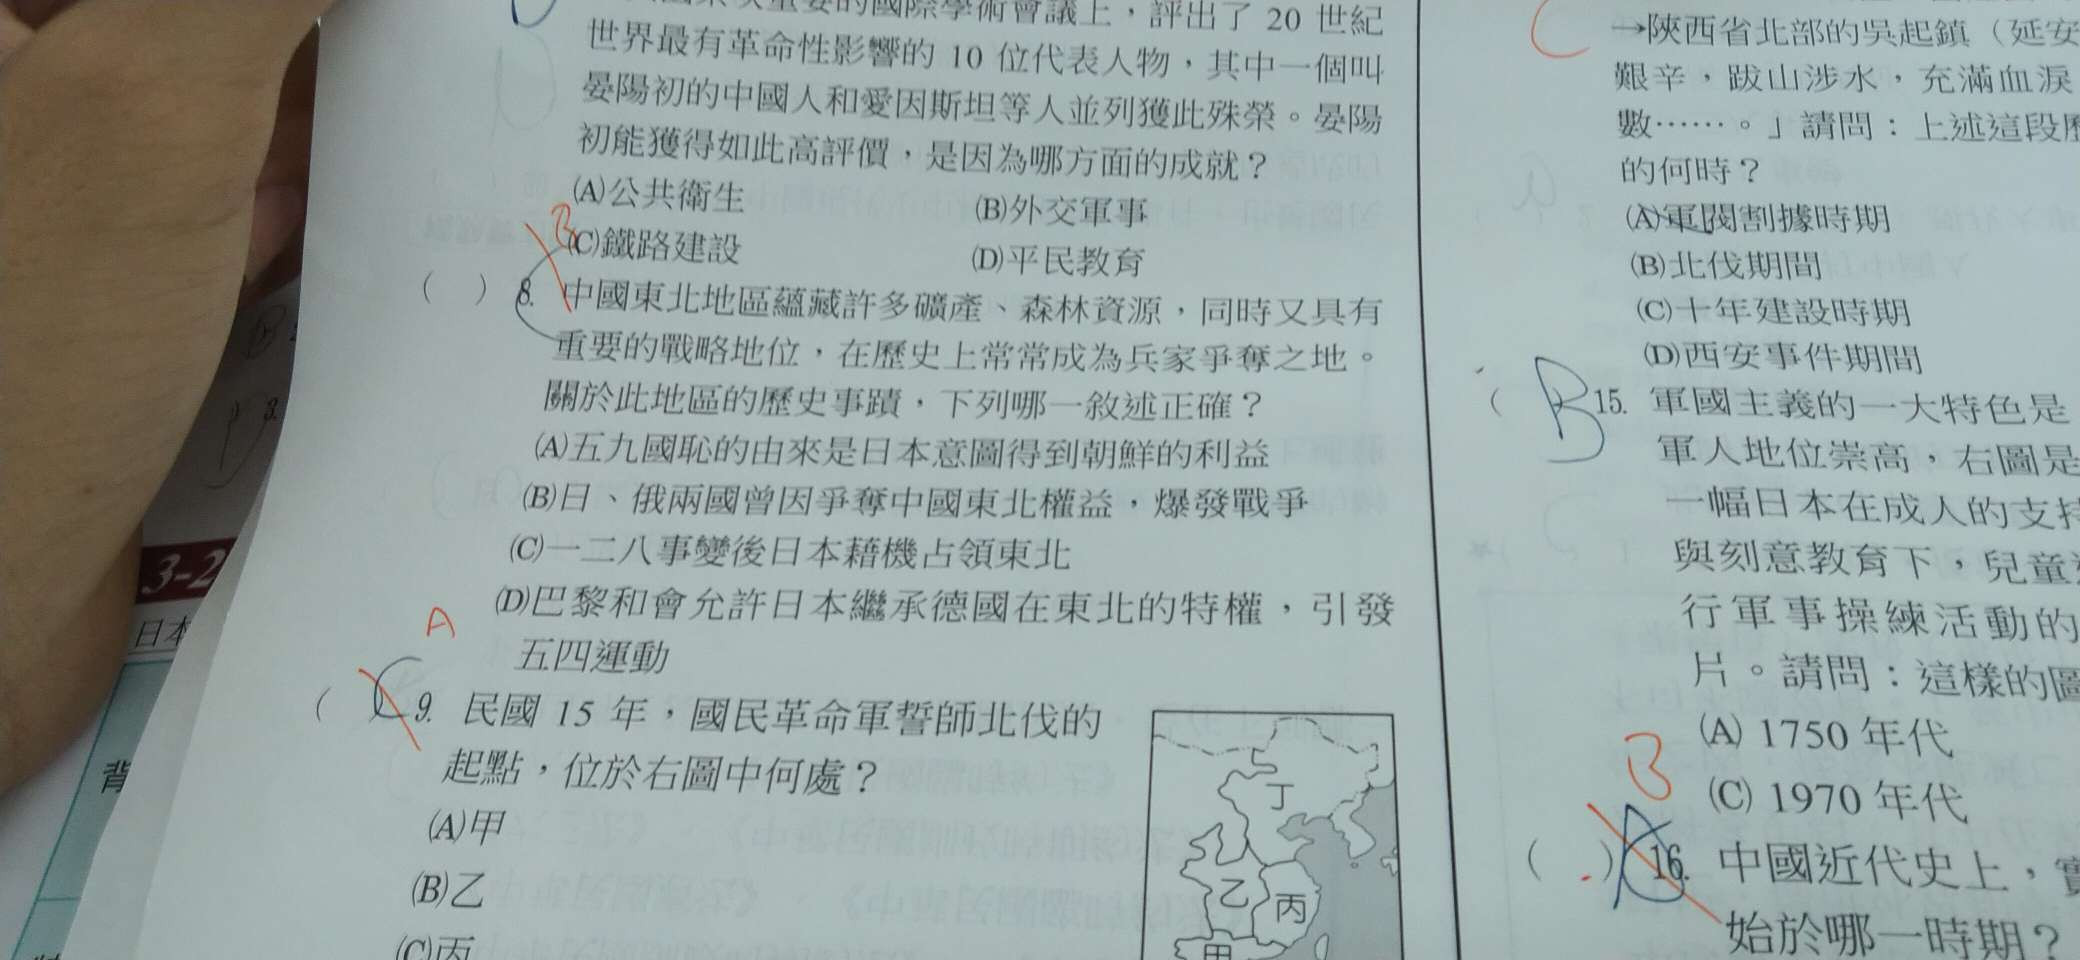 的國際學術會議上，評出了 20 世紀
世界最有革命性影響的 10 位代表人物，其中一個叫
晏陽初的中國人和愛因斯坦等人並列獲此殊榮。晏陽
初能獲得如此高評價，是因為哪方面的成就？
(A)公共衛生 (B)外交軍事
(C)鐵路建設 (D)平民教育
B
( ) 8. 中國東北地區蘊藏許多礦產、森林資源，同時又具有
重要的戰略地位，在歷史上常常成為兵家爭奪之地。
關於此地區的歷史事蹟，下列哪一敘述正確？
(A)五九國恥的由來是日本意圖得到朝鮮的利益
(B)日、俄兩國曾因爭奪中國東北權益，爆發戰爭
(C)一二八事變後日本藉機占領東北
(D)巴黎和會允許日本繼承德國在東北的特權，引發
五四運動
A
( C 9. 民國 15 年，國民革命軍誓師北伐的
起點，位於右圖中何處？
(A)甲
(B)乙
(C)丙
丁
乙
丙
甲
C
→陝西省北部的吳起鎮（延安
艱辛，跋山涉水，充滿血淚
數……。」請問：上述這段
的何時？
(A)軍閥割據時期
(B)北伐期間
(C)十年建設時期
(D)西安事件期間
( B 15. 軍國主義的一大特色是
軍人地位崇高，右圖是
一幅日本在成人的支持
與刻意教育下，兒童
行軍事操練活動的
片。請問：這樣的圖
(A) 1750 年代
(C) 1970 年代
B
( ) A 16. 中國近代史上，實
始於哪一時期？
3-2
日本
背
3.